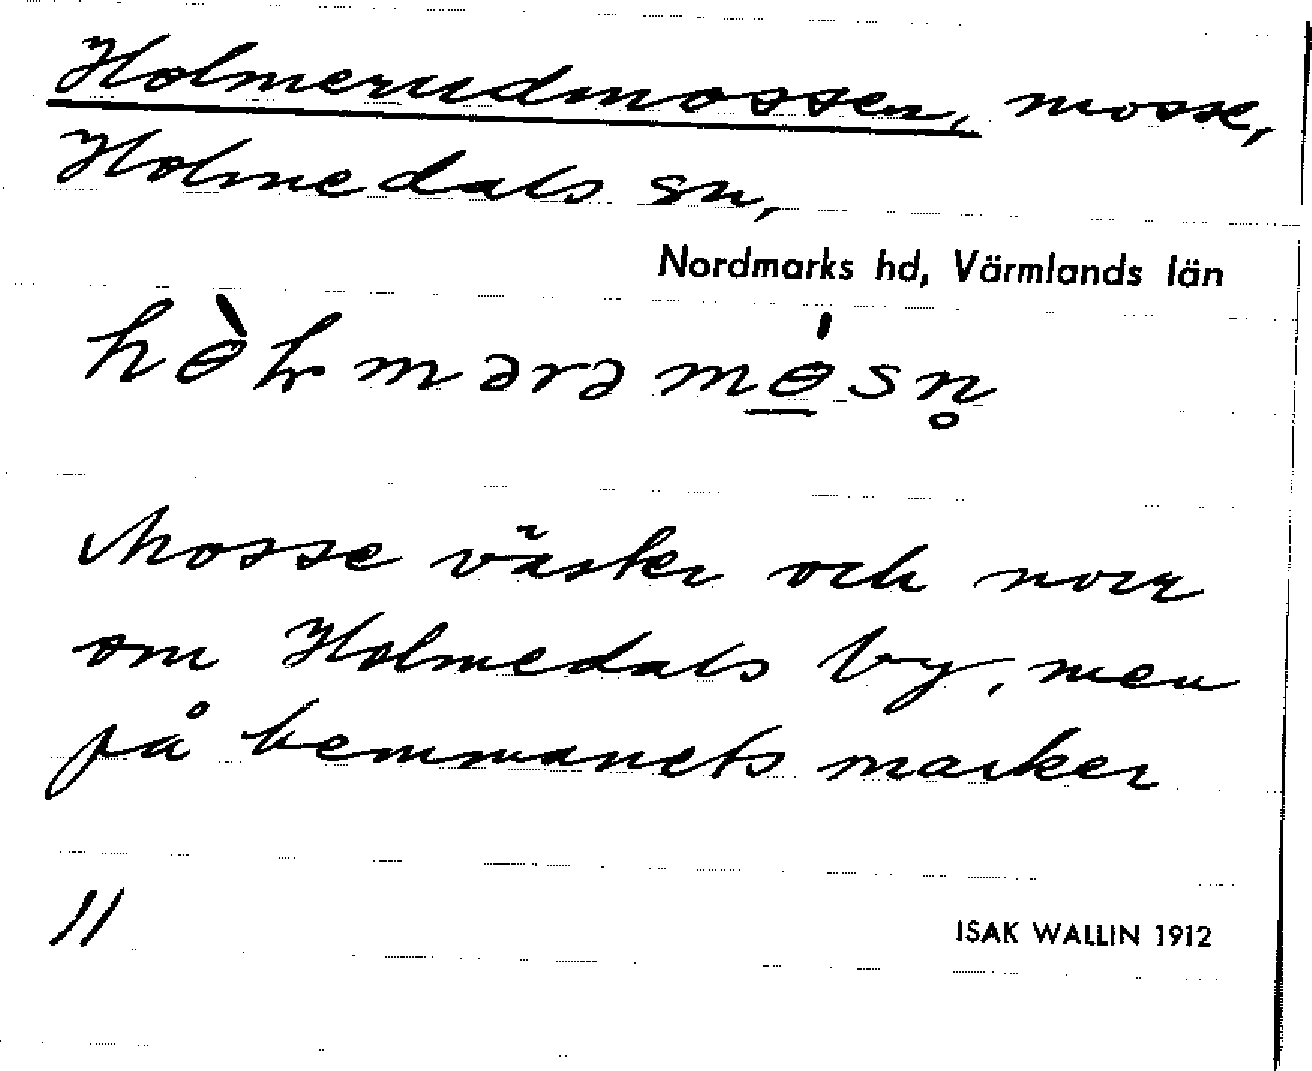 Holmerudmossen, mosse,
Holmedals sn,
Nordmarks hd, Värmlands län
Mosse väster och norr
om Holmedals by, men
på hemmanets marker
11
ISAK WALLIN 1912